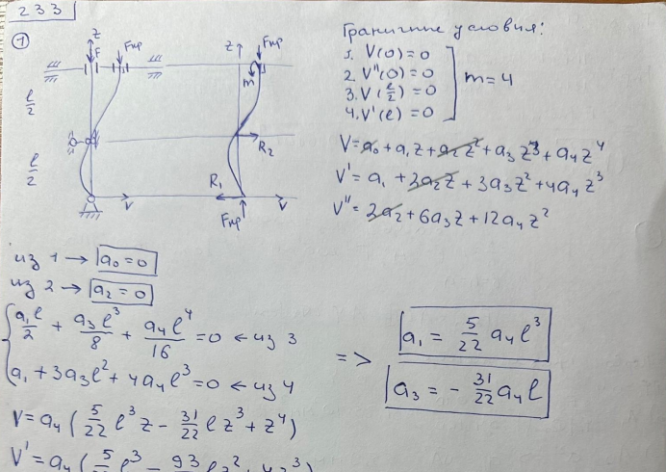 233
① z F Fкр z Fкр
m
ℓ/2
R₂
ℓ/2
R₁
v Fкр v
Граничные условия:
1. V(0)=0
2. V''(0)=0
3. V(ℓ/2)=0
4. V'(ℓ)=0
m=4
V=a₀+a₁z+a₂z²+a₃z³+a₄z⁴
V'=a₁+2a₂z+3a₃z²+4a₄z³
V''=2a₂+6a₃z+12a₄z²
из 1 → a₀=0
из 2 → a₂=0
a₁ℓ/2 + a₃ℓ³/8 + a₄ℓ⁴/16 =0 ← из 3
a₁+3a₃ℓ²+4a₄ℓ³=0 ← из 4
=> a₁ = 5/22 a₄ℓ³
a₃ = - 31/22 a₄ℓ
V=a₄(5/22 ℓ³z - 31/22 ℓz³+z⁴)
V'=a₄(5/22 ℓ³ - 93/22 ℓz²+4z³)